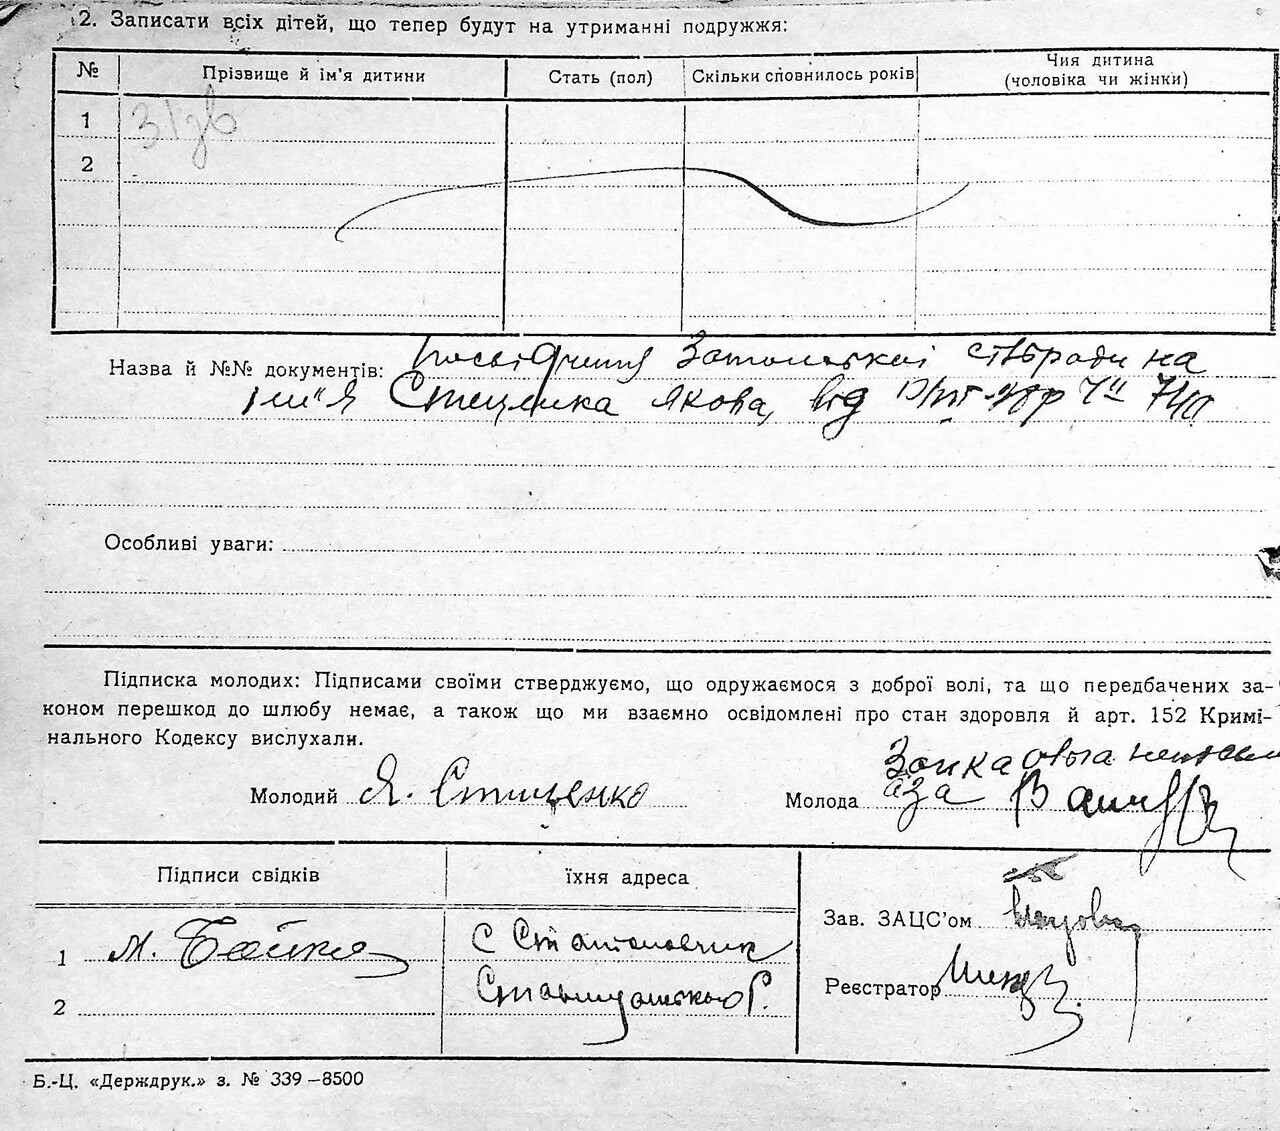 12. Записати всіх дітей, що тепер будут на утриманні подружжя:
№ Прізвище й ім'я дитини Стать (пол) Скільки сповнилось років Чия дитина (чоловіка чи жінки)
1
2
Назва й №№ документів: посвідчення сільради на
Стеценка Якова, від
Особливі уваги:
Підписка молодих: Підписами своїми стверджуємо, що одружаємося з доброї волі, та що передбачених за-
коном перешкод до шлюбу немає, а також що ми взаємно освідомлені про стан здоровля й арт. 152 Кримі-
нального Кодексу вислухали.
Молодий Я. Стеценко Молода
Підписи свідків їхня адреса
Зав. ЗАЦС'ом
1 М. Бойко с
2
Реєстратор
Б.-Ц. «Держдрук.» з. № 339—8500